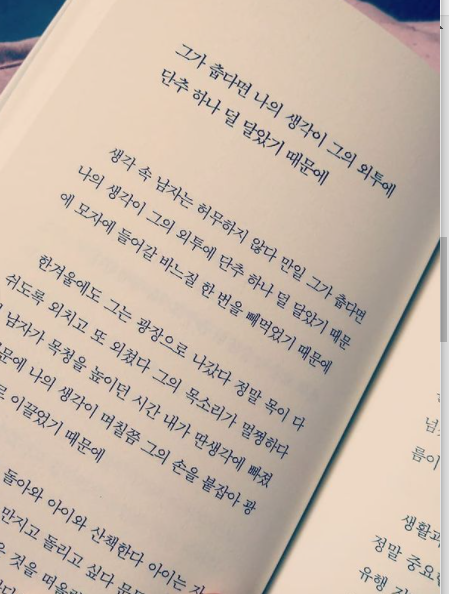 그가 춥다면 나의 생각이 그의 외투에
단추 하나 덜 달았기 때문에
생각 속 남자는 허무하지 않다 만일 그가 춥다면
나의 생각이 그의 외투에 단추 하나 덜 달았기 때문
에 모자에 들어갈 바느질 한 번을 빼먹었기 때문에
한겨울에도 그는 광장으로 나갔다 정말 목이 다
쉬도록 외치고 또 외쳤다 그의 목소리가 멀쩡하다
남자가 목청을 높이던 시간 내가 딴생각에 빠졌
때문에 나의 생각이 며칠쯤 그의 손을 붙잡아 광
이끌었기 때문에
돌아와 아이와 산책한다 아이는
만지고 돌리고 싶다
것을
넘
름이
생활
정말 중요
유행